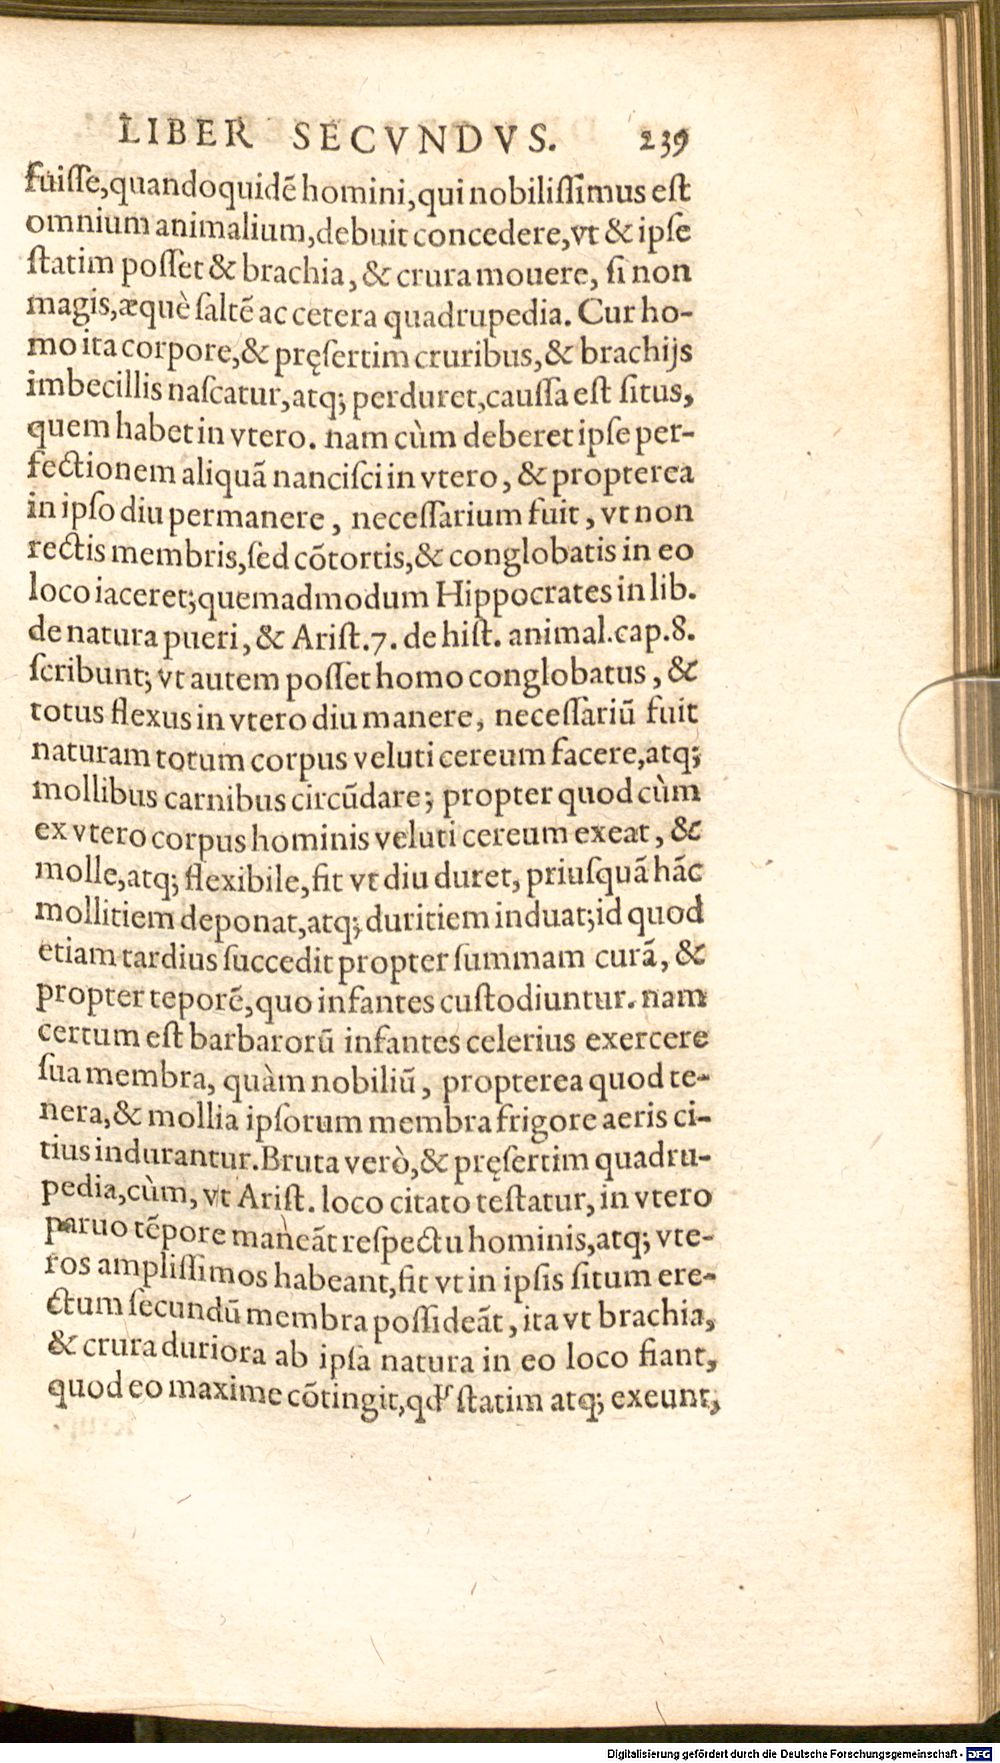 LIBER SECVNDVS. 239
fuiſſe,quandoquidē homini,qui nobiliſſimus eſt
omnium animalium,debuit concedere,vt & ipſe
ſtatim poſſet & brachia, & crura mouere, ſi non
magis,æquè ſaltē ac cetera quadrupedia. Cur ho-
mo ita corpore,& pręſertim cruribus,& brachijs
imbecillis naſcatur,atq; perduret,cauſſa eſt ſitus,
quem habet in vtero. nam cùm deberet ipſe per-
fectionem aliquā nanciſci in vtero, & propterea
in ipſo diu permanere, neceſſarium fuit, vt non
rectis membris,ſed cōtortis,& conglobatis in eo
loco iaceret;quemadmodum Hippocrates in lib.
de natura pueri, & Ariſt.7. de hiſt. animal.cap.8.
ſcribunt; vt autem poſſet homo conglobatus, &
totus flexus in vtero diu manere, neceſſariū fuit
naturam totum corpus veluti cereum facere,atq;
mollibus carnibus circūdare; propter quod cùm
ex vtero corpus hominis veluti cereum exeat, &
molle,atq; flexibile,fit vt diu duret, priuſquā hāc
mollitiem deponat,atq; duritiem induat;id quod
etiam tardius ſuccedit propter ſummam curā, &
propter teporē,quo infantes cuſtodiuntur. nam
certum eſt barbarorū infantes celerius exercere
ſua membra, quàm nobiliū, propterea quod te-
nera,& mollia ipſorum membra frigore aeris ci-
tius indurantur.Bruta verò,& pręſertim quadru-
pedia,cùm, vt Ariſt. loco citato teſtatur, in vtero
paruo tēpore maneāt reſpectu hominis,atq; vte-
ros ampliſſimos habeant,fit vt in ipſis ſitum ere-
ctum ſecundū membra poſſideāt, ita vt brachia,
& crura duriora ab ipſa natura in eo loco fiant,
quod eo maxime cōtingit,qđ ſtatim atq; exeunt,
Digitalisierung gefördert durch die Deutsche Forschungsgemeinschaft - DFG